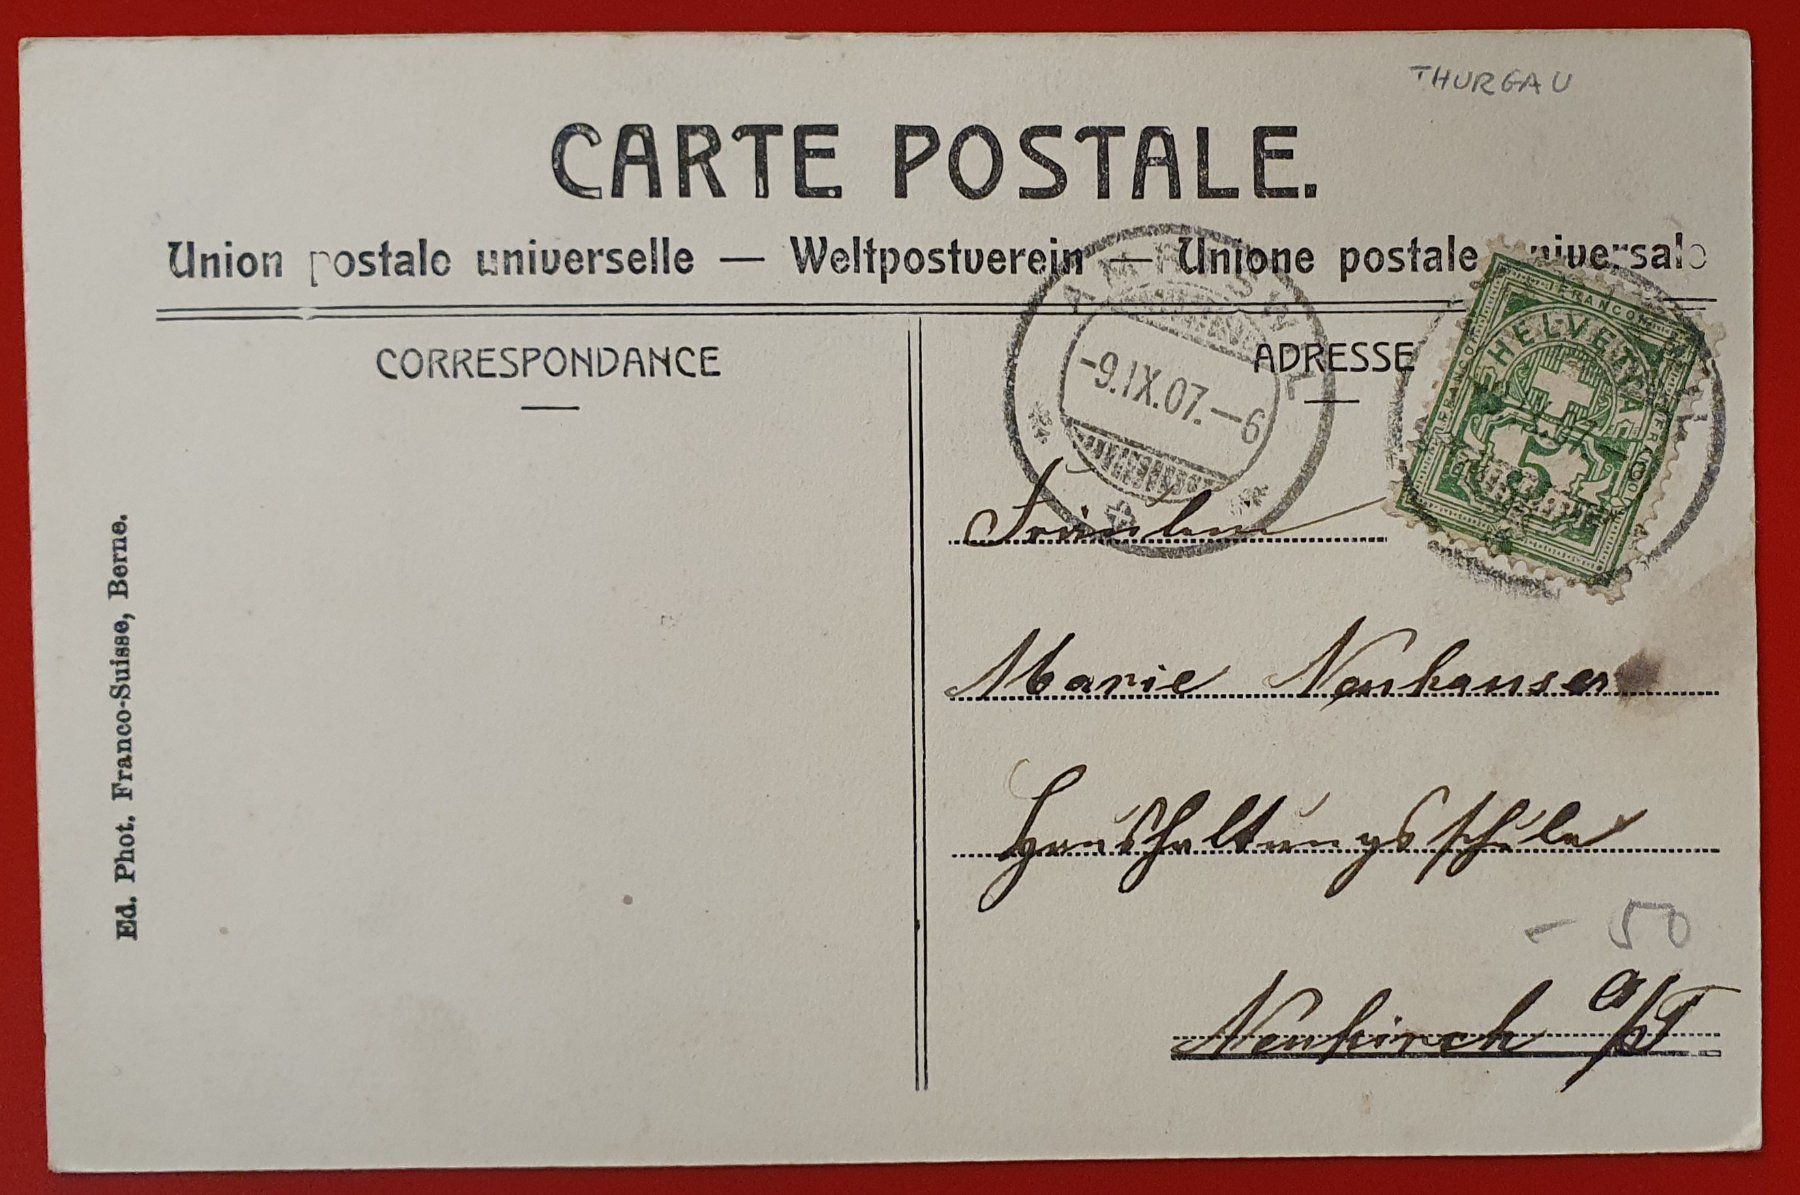 THURGAU
CARTE POSTALE.
Union postale universelle — Weltpostverein — Unione postale universale
CORRESPONDANCE
ADRESSE
-9.IX.07.-6
FRANCO
HELVETIA
5
Fräulein
Marie Neuhauser
Haushaltungsschule
- 50
Neukirch a/T
Ed. Phot. Franco-Suisse, Berne.